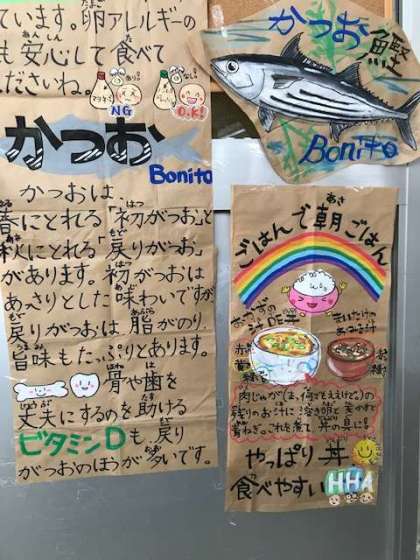 ています。卵アレルギーの
も安心して食べて
ださいね。
NG
O.K!
かつお
Bonito
かつおは、
春にとれる「初がつお」と
秋にとれる「戻りがつお」
があります。初がつおは
あっさりとした味わいですが、
戻りがつおは脂がのり、
旨味もたっぷりとあります。
骨や歯を
丈夫にするのを助ける
ビタミンDも戻り
がつおのほうが多いです。
かつお 鰹
Bonito
ごはんで朝ごはん
おかずの
汁

肉じゃが(ま、何でもええけど)の
残りのお汁に溶き卵と
青ねぎ。これを煮て、丼の具に!
やっぱり丼
食べやすい
HHA